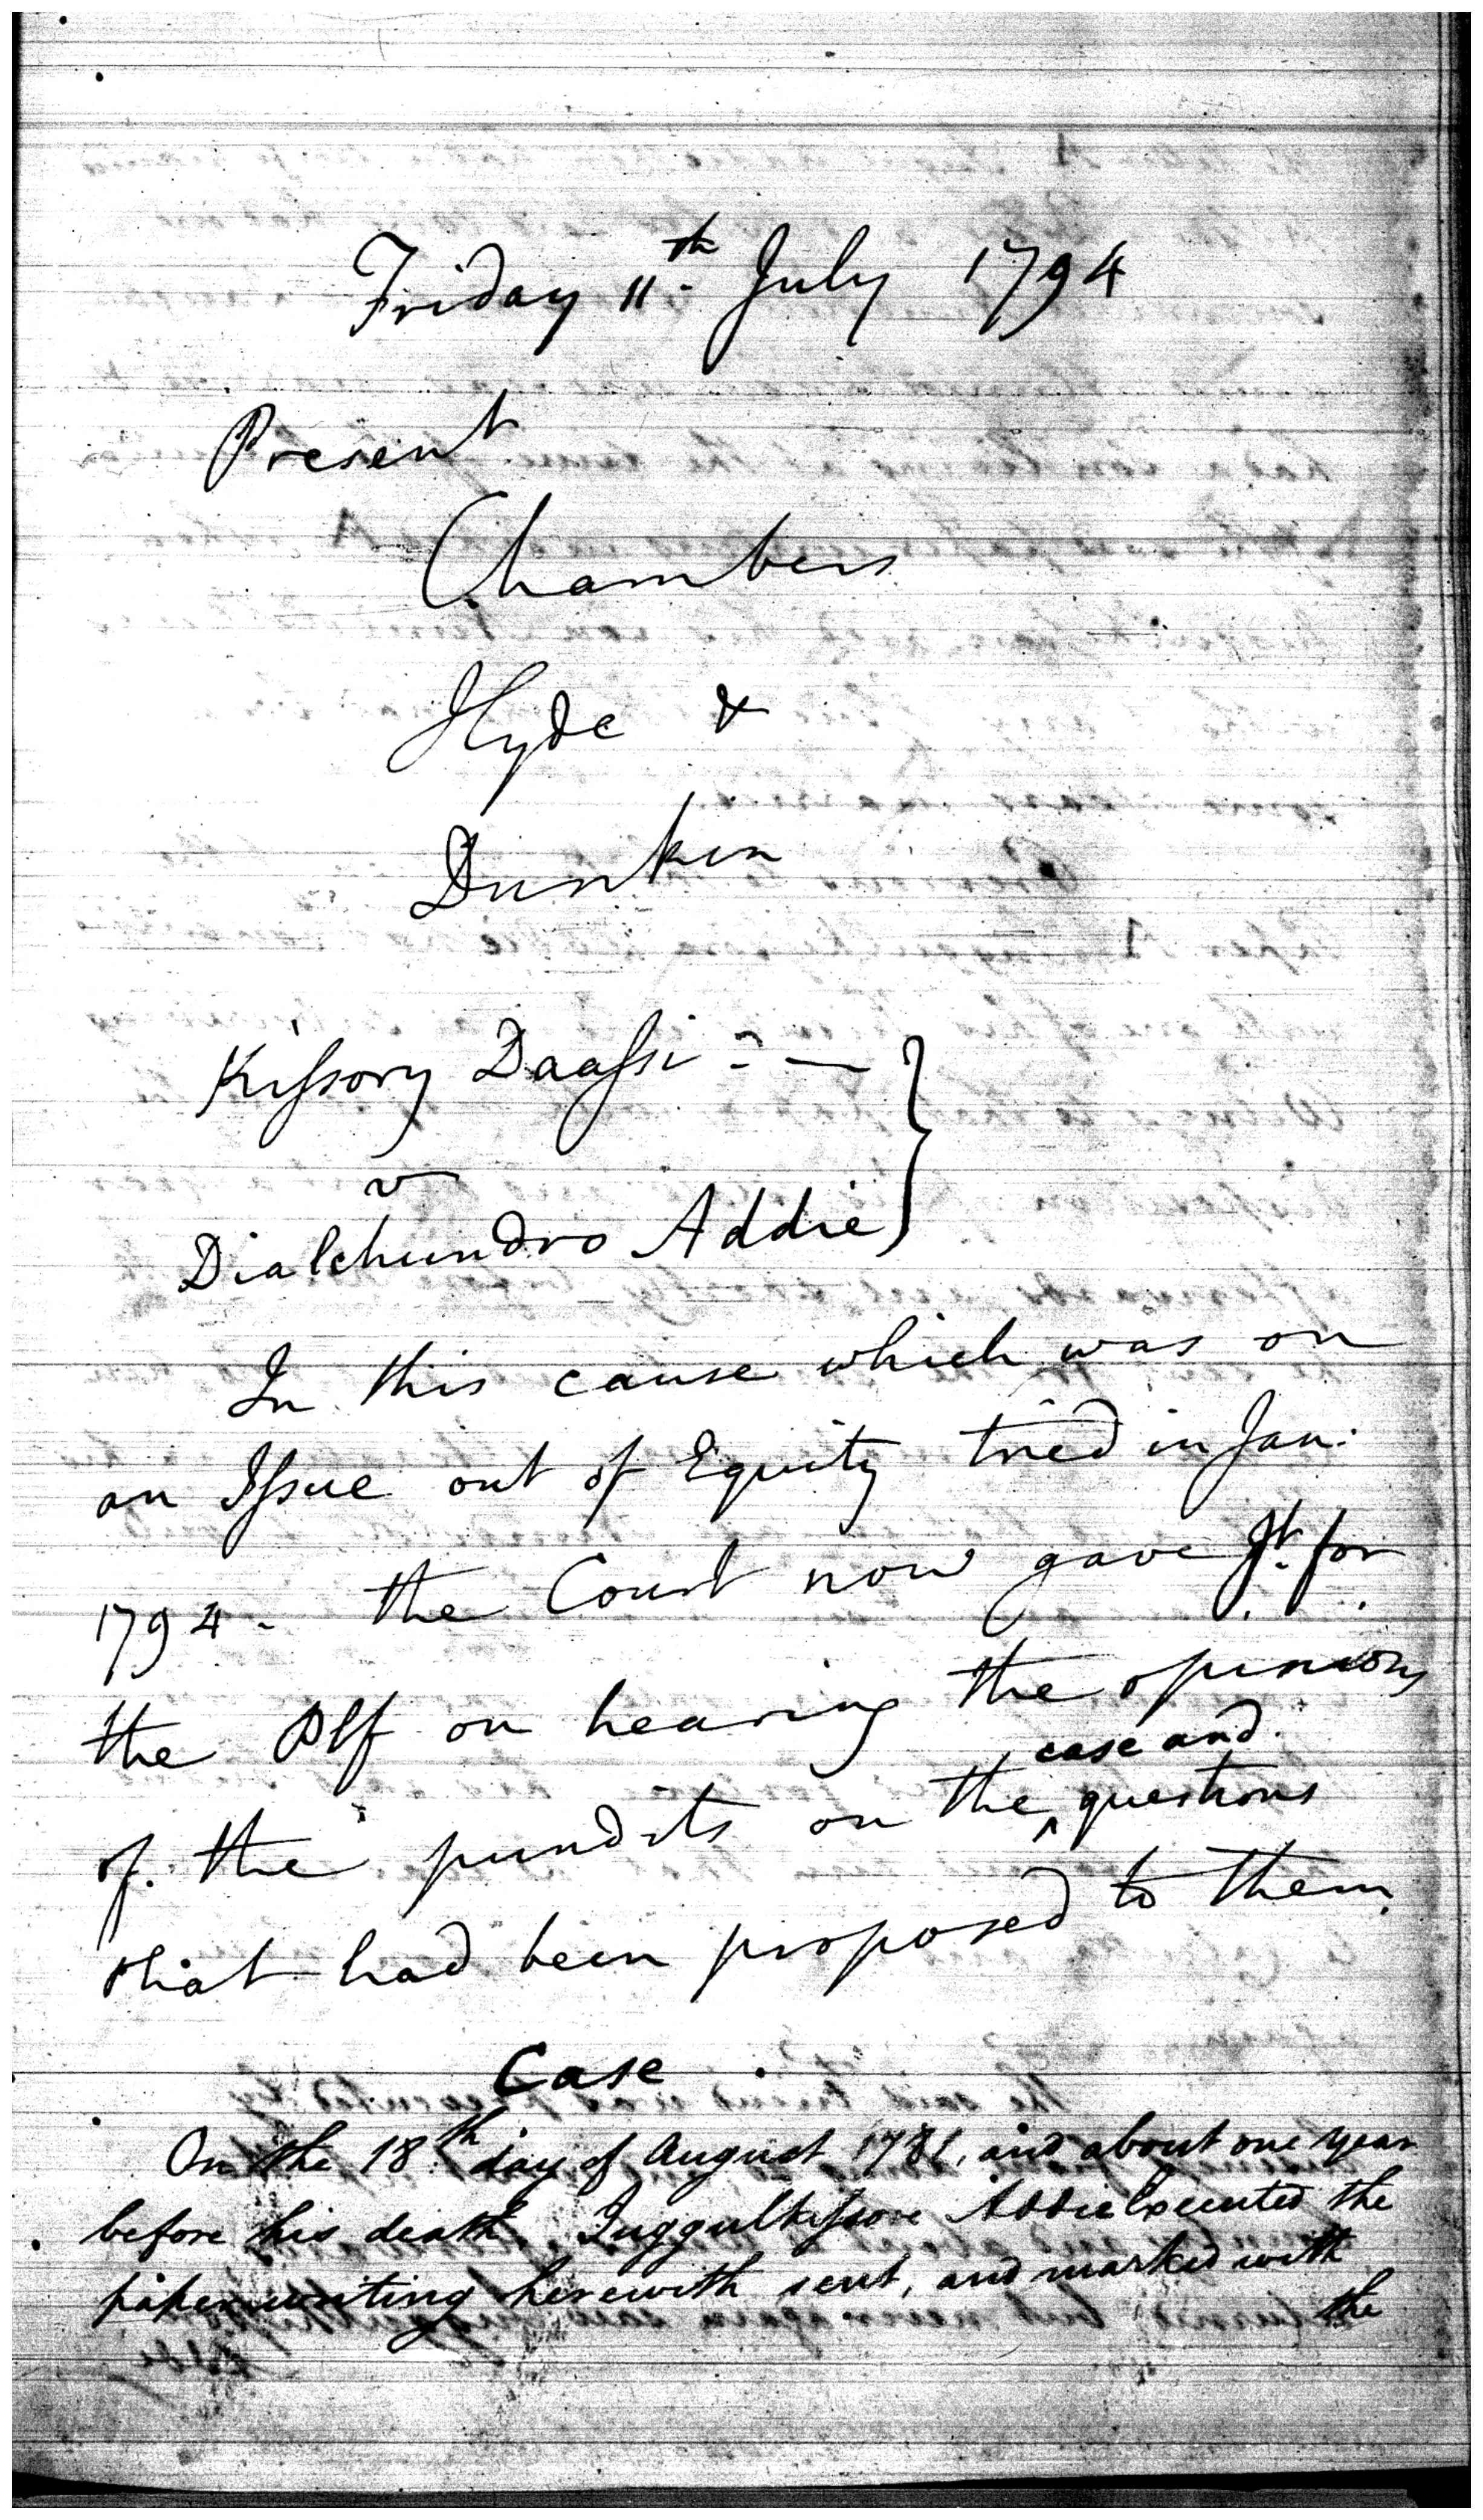 Friday 11th July 1794
Present
Chambers
Hyde &
Dunkin
Kiſsory Daaſsi
v
Dialchundro Addie
In this cause which was on
an Iſsue out of Equity tried in Jan:
1794 - the Court now gave Jt. for
the Plf on hearing the opinions
case and
of the pundits on the ^ questions
that had been proposed to them.
Case
On the 18th day of August 1781, and about one year
before his death, Juggulkiſsore Addie Executed the
paper writing herewith sent, and marked with
the